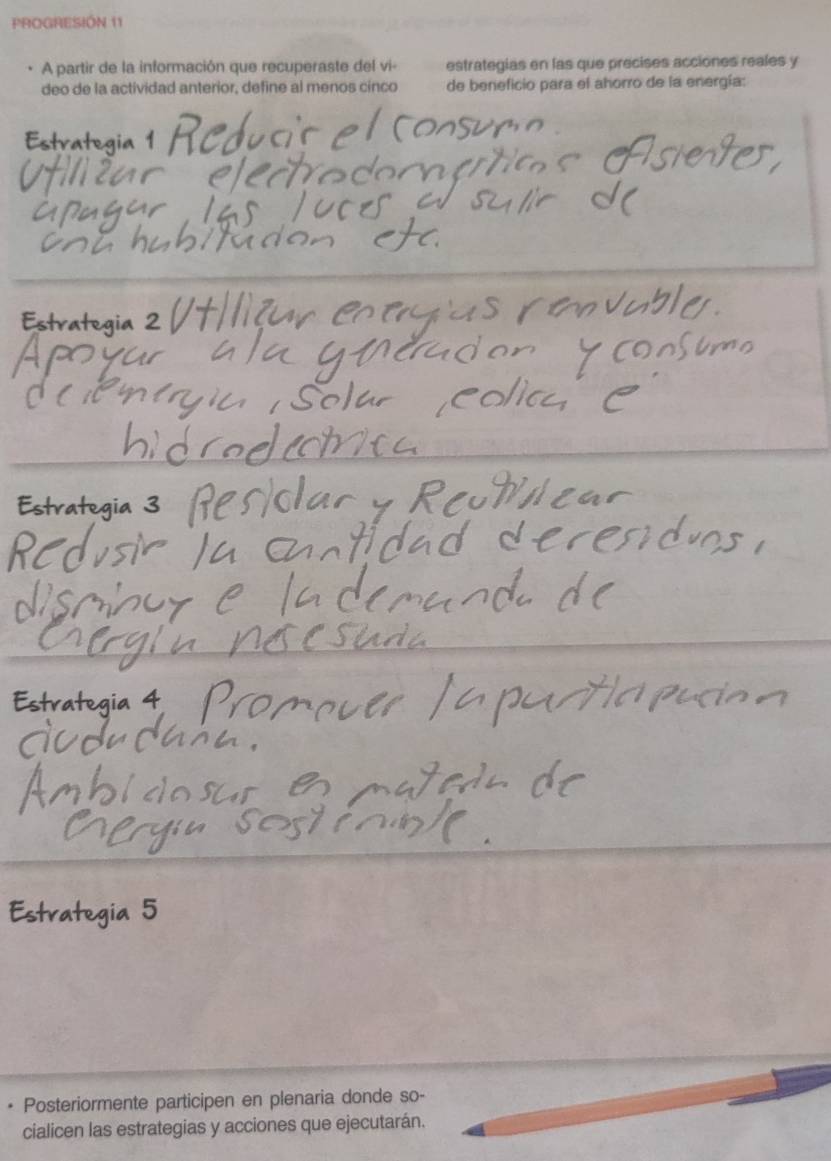 PROGRESIÓN 11
• A partir de la información que recuperaste del vi-
deo de la actividad anterior, define al menos cinco
estrategias en las que precises acciones reales y
de beneficio para el ahorro de la energía:
Estrategia 1 Reducir el consumo.
Utilizar electrodomesticos efisientes,
apagar las luces al salir de
una habitacion etc.
Estrategia 2 Utilizar energias renvables.
Apoyar a la generacion y consumo
de energia, solar, eolica e
hidroelectrica
Estrategia 3 Resiclar y Reutilizar
Redusir la cantidad de residuos,
disminuye la demanda de
energia nesesaria
Estrategia 4 Promover la participacion
ciudadana.
en materia de
energia sostenible.
Estrategia 5
• Posteriormente participen en plenaria donde so-
cialicen las estrategias y acciones que ejecutarán.